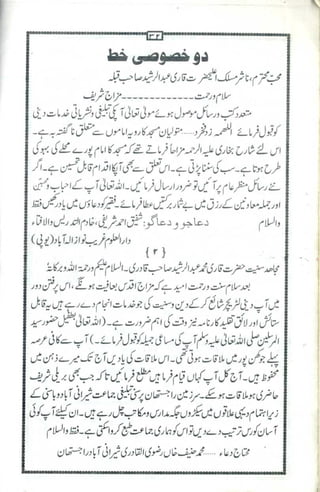 ۳۲
دو خصوصی خط
محب محترم، ناشر مسلک اعلیٰحضرت قاری عبدالرشید صاحب قبلہ
سلام ورحمت ۔۔۔۔۔۔۔۔۔۔ مزاج شریف
متعدد کتب و رسائل موصول ہوئے مولیٰ تعالیٰ آپکی تبلیغی و نشریاتی خدمات دینی
کو قبول فرمائے اللھمہ زد فزد ۔۔۔۔ متولیان مسجد کا رویہ اماموں سے متعلق ناگفتہ بہ ہے۔
اس لئے شارح بخاری علیہ الرحمہ مزاحاً فرماتے تھے کہ مسجد کا امام پورے محلے کی بہو کی
طرح ہوتا ہے۔ سب کی سننا پڑتی ہے۔ اس تعلق سے بھی آپکا اقدام قابل تحسین ہے۔ اگر
نئے رسائل منظر عام پر آئیں تو ضرور ارسال فرمائیں۔ اللہ تعالیٰ آپ کے احباب و
اور جملہ معاونین کے رزق میں بے شمار برکتیں عطا فرمائے۔ فقیر کو دعاؤں میں یاد رکھیں فقط
والسلام دعاجو و دعاگو: شفیق احمد شریفی، خادم التدریس والافتاء
دارالعلوم غریب نواز الہ آباد (یوپی)
{۲}
مجاهد سنیت حضرت قاری محمد عبدالرشید صاحب قادری۔ السلام علیکم ورحمۃ اللہ وبرکاتہ
بعد سلام سنت ورحمت امید ہے کہ مزاج اقدس بعافیت ہونگے۔ اس پرفتن دور
میں آپ دینی لٹریچر شائع کر کے دین و سنیت کی جو خدمات انجام دے رہے ہیں یہ قابل
ستائش اور لائق تقلید کارنامہ نیز وقت کی اہم ضرورت ہے۔ (اللہ تعالیٰ بطفیل حضور سید
المرسلین صلی اللہ تعالیٰ علیہ وسلم آپ کی مساعی جمیلہ کو قبول فرمائے۔) آپ سے کافی عرصہ
پہلے جو طن پور میں ملاقات ہوئی تھی۔ اس ملاقات کی یادیں آج تک میرے ذہن میں
محفوظ ہیں۔ آج کل آپ کہاں قیام فرما ہیں مطلع فرمائیں تاکہ جب بھی بریلی شریف
حاضری ہو ملاقات ہو سکے۔ سرزمین راجستھان پر سنی تبلیغی جماعت شیرانی آباد و باسنی کے
زیر اہتمام دیہی علاقوں میں سیکڑوں جگہ مدارس و مکاتب چل رہے ہیں۔ ان کیلئے آپ کوئی
آسان کورس ترتیب دے دیں تو اس کو ہماری جماعت طبع کرا سکتی ہے۔ فقط والسلام
محتاج دعاء ۔۔۔۔ محمد حنیف خاں رضوی القادری شیرانی آباد راجستھان